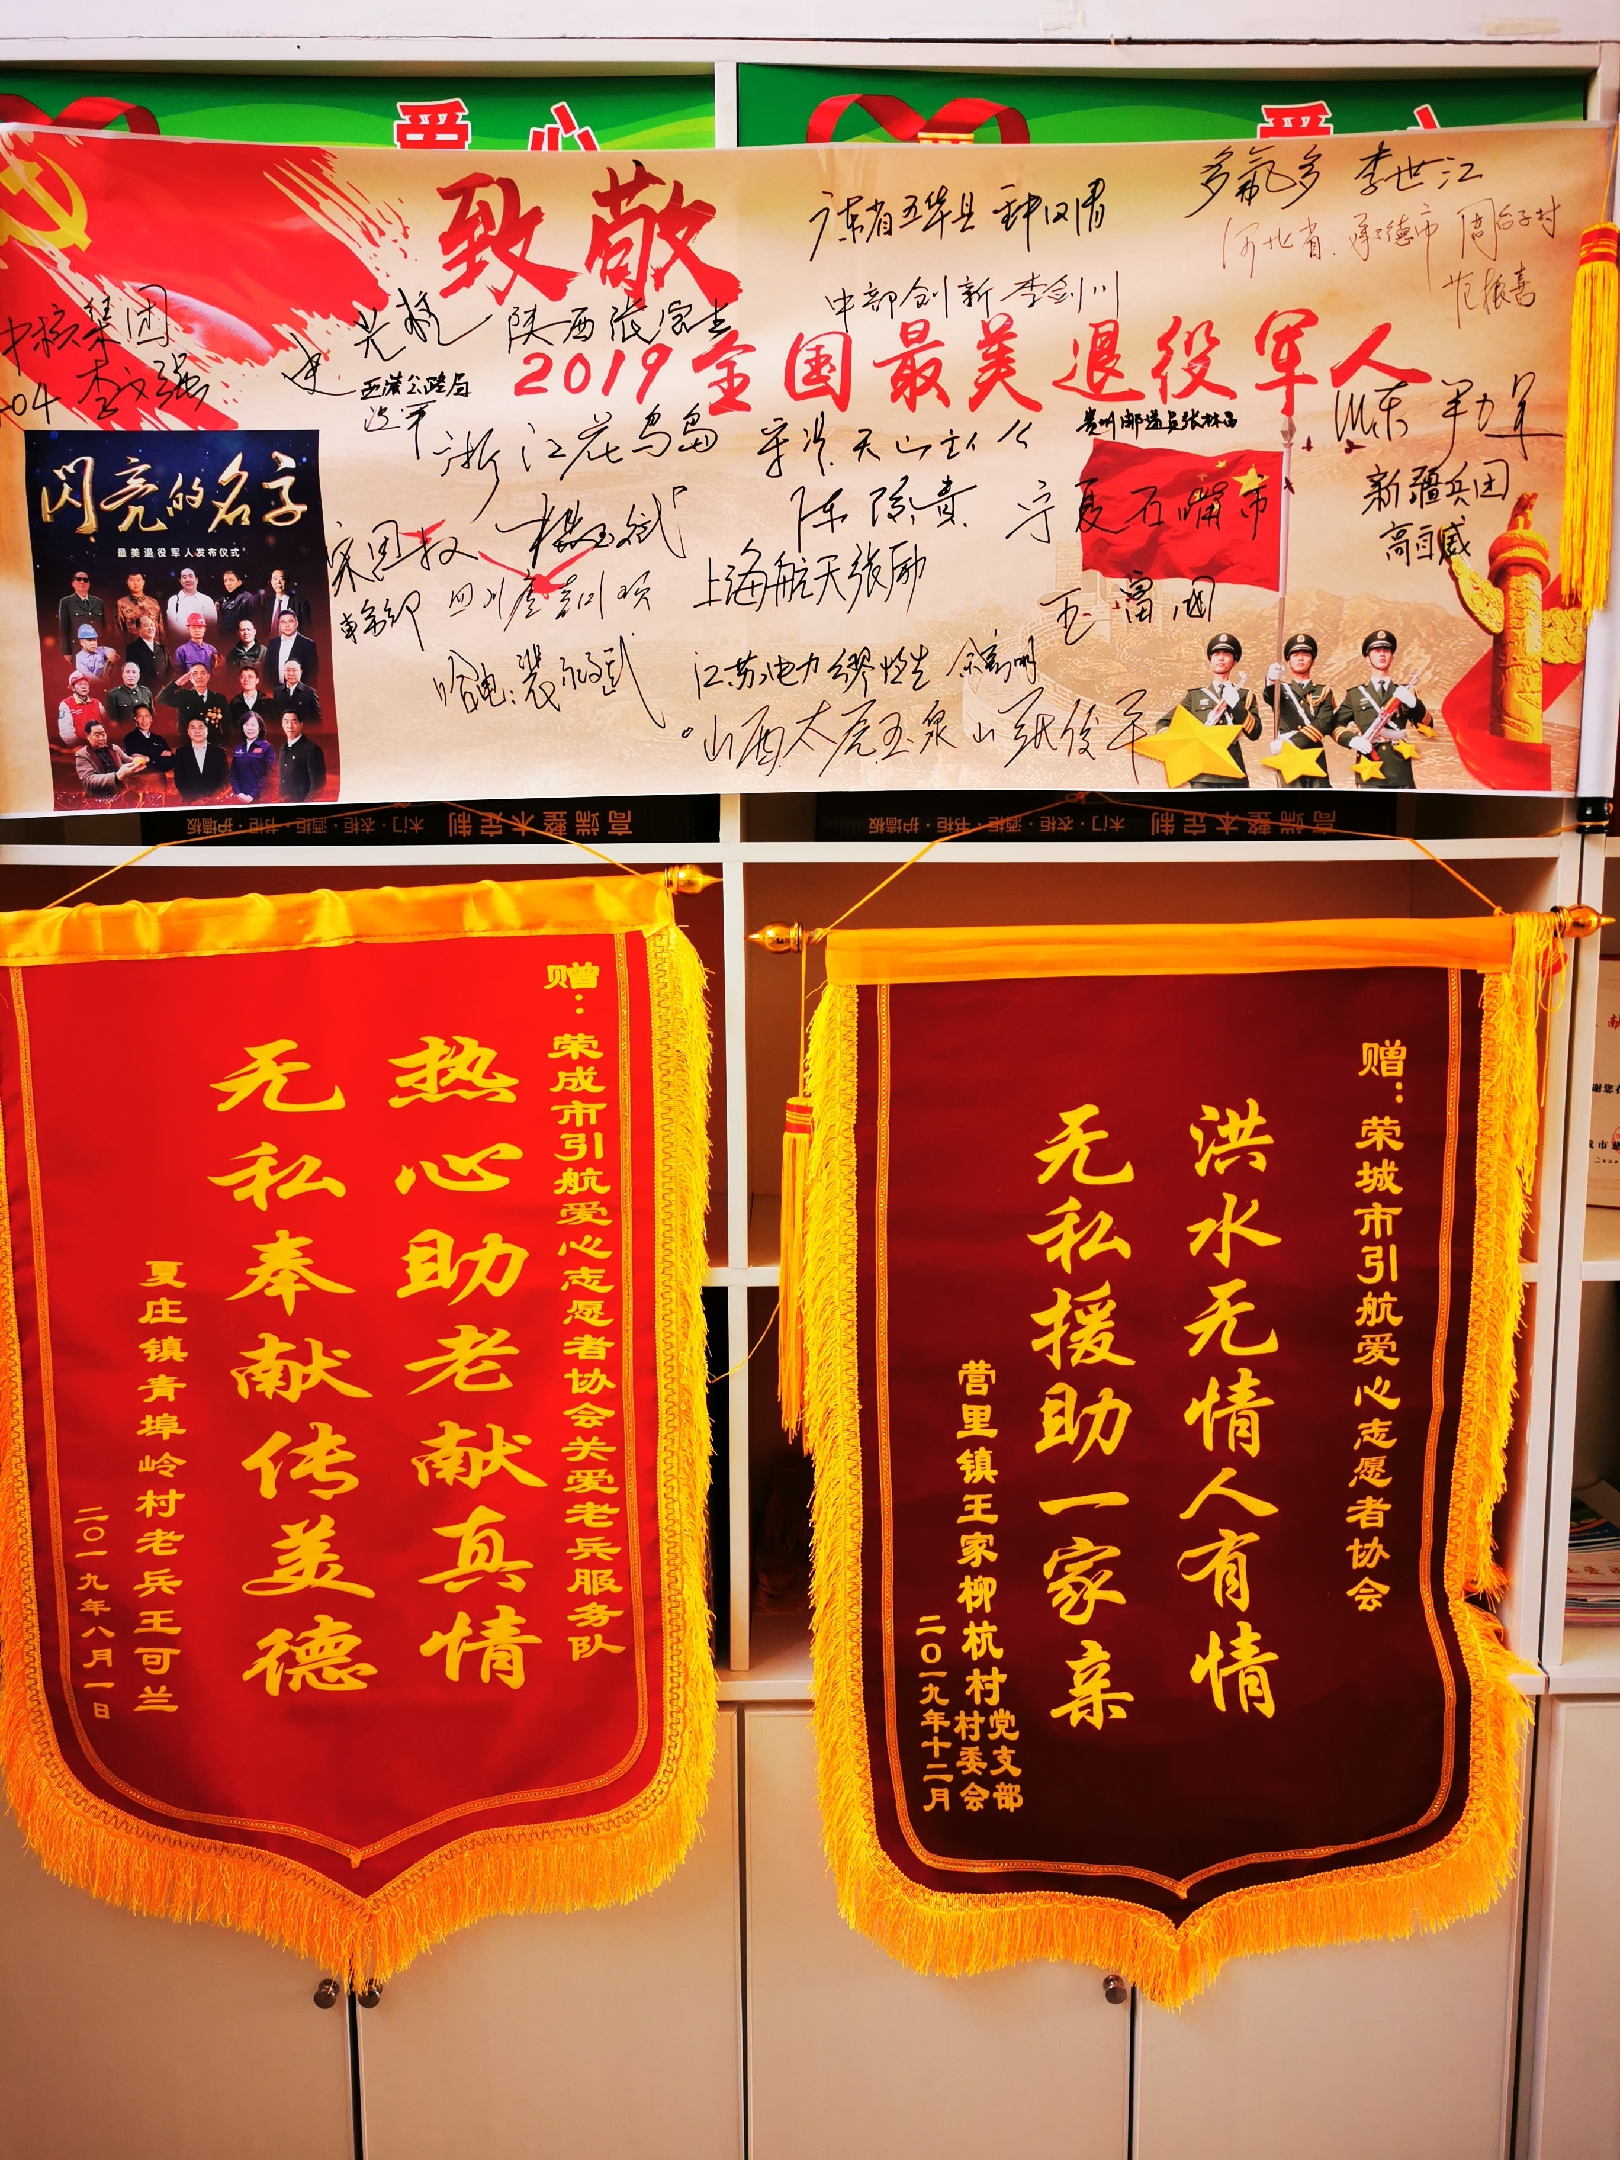 爱心
爱心
致敬
2019全国最美退役军人
多氟多 李世江
河北省.承德市 周台子村
范振喜
广东省五华县
中部创新 李剑川
中核集团
404 李文强
陕西
西藏公路局
浙江花鸟岛
贵州邮递员张林昌
山东
陈随贵
宁夏石嘴市
新疆兵团
宋国权
上海航天张励
四川
江苏电力 余高明
闪亮的名字
最美退役军人发布仪式
高端整木定制 木门·衣柜·酒柜·书柜·护墙板
高端整木定制 木门·衣柜·酒柜·书柜·护墙板
赠：荣成市引航爱心志愿者协会关爱老兵服务队
热心助老献真情
无私奉献传美德
夏庄镇青埠岭村老兵王可兰
二〇一九年八月一日
赠：荣城市引航爱心志愿者协会
洪水无情人有情
无私援助一家亲
营里镇王家柳杭村党支部
村委会
二〇一九年十二月